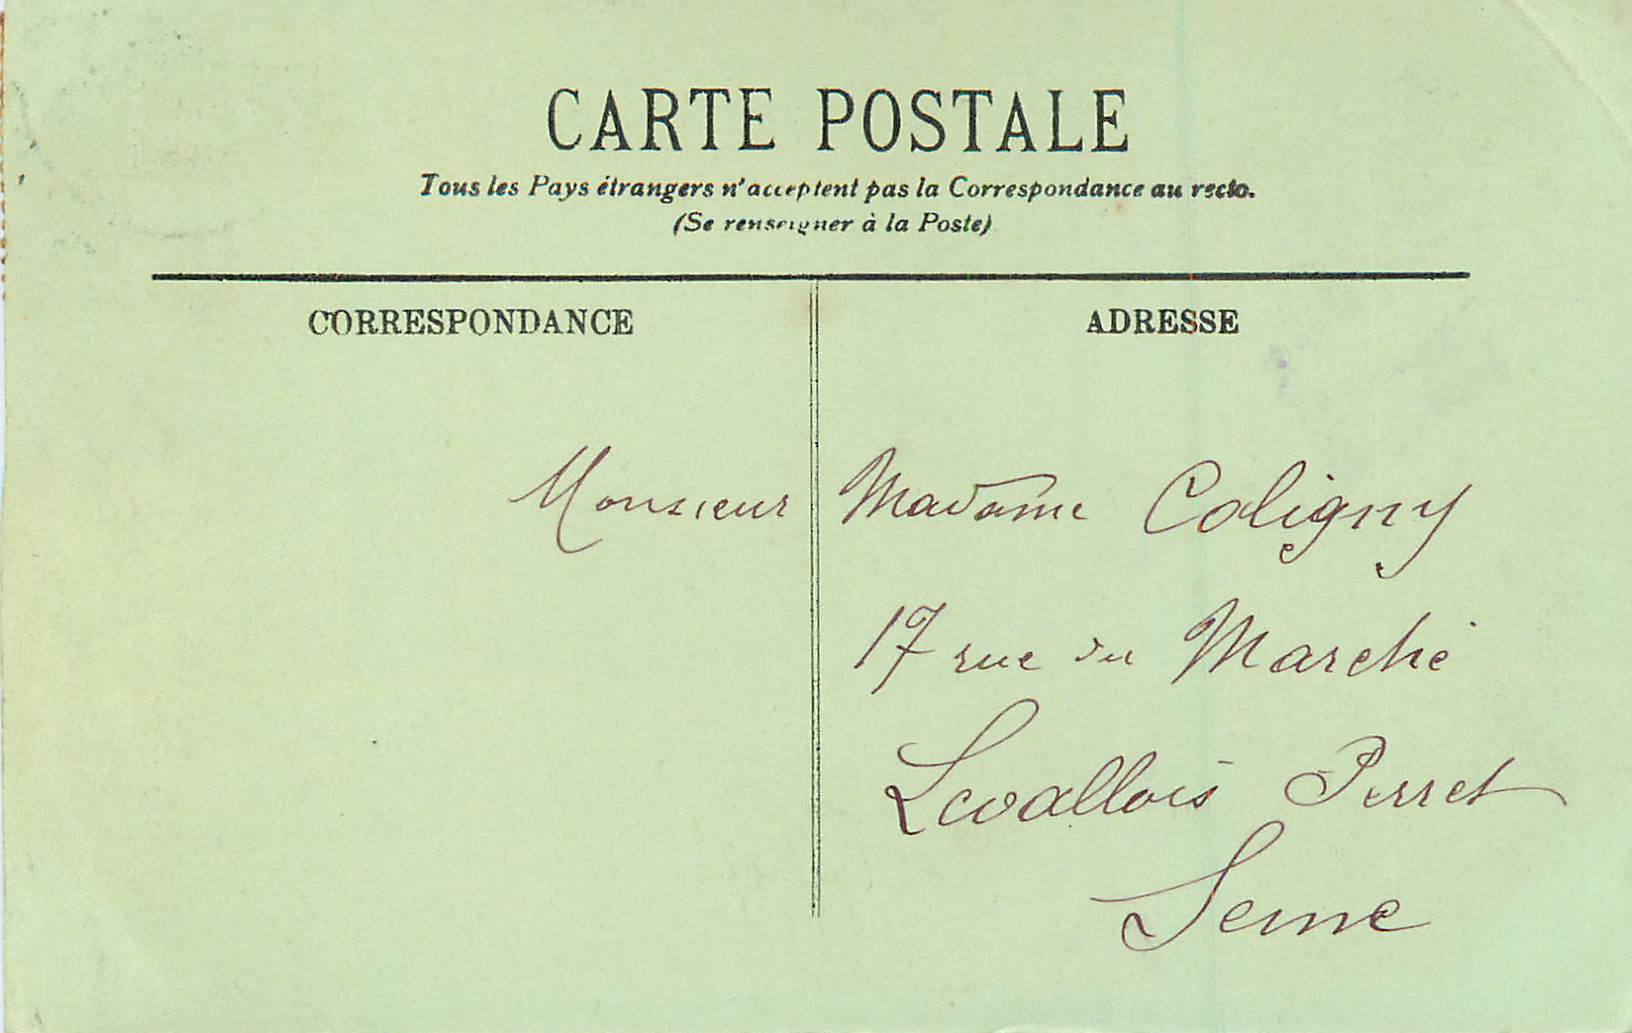 CARTE POSTALE
Tous les Pays étrangers n'acceptent pas la Correspondance au recto.
(Se renseigner à la Poste)
CORRESPONDANCE
ADRESSE
Monsieur Madame Coligny
17 rue du Marché
Levallois Perret
Seine